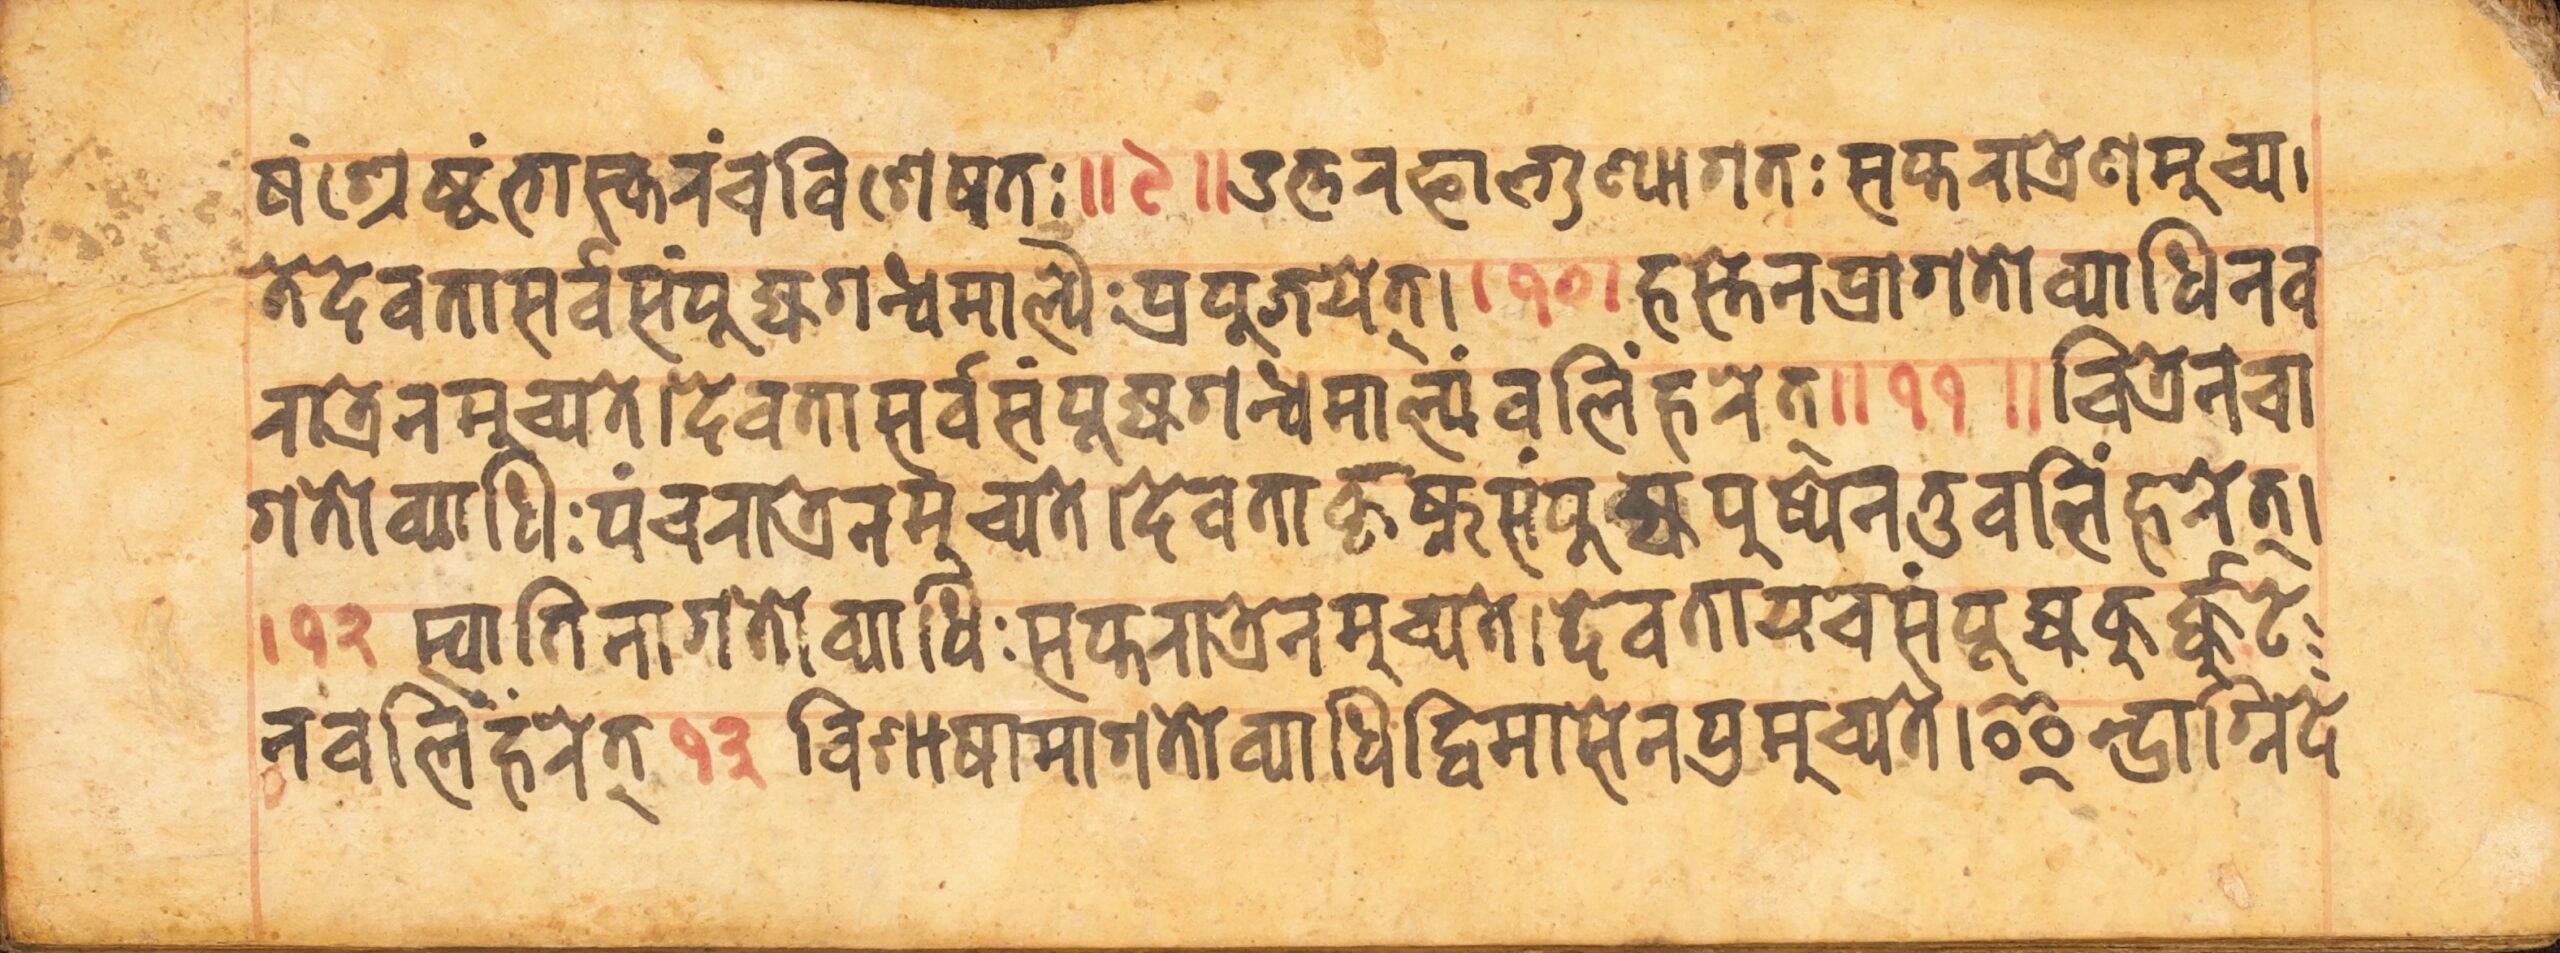 षंश्रेष्ठंभास्करंचविशेषतः॥९॥उत्तरफाल्गुण्यागतः सप्तरात्रेणमुच्य।
तेदेवतासर्वसंपूज्यगन्धमाल्यैः प्रपूजयेत्।।१०।हस्तेनप्रागतोव्याधिनव
रात्रेनमुच्यते।देवतासर्वसंपूज्यगन्धमाल्यंवलिंहरेत्॥११॥चित्रेनचा
गतोव्याधिः पंचरात्रेनमुच्यते।देवताकृष्णसंपूज्यपुष्पेनतुवलिंहरेत्।
।१२ स्वातिनागतोव्याधिः सप्तरात्रेनमुच्यते।देवतायवसंपूज्यकुर्क्कुटे
नवलिंहंरेत् १३ विशाषामागतोव्याधिद्विमासेनप्रमुच्यते।ऐन्द्राग्निदे